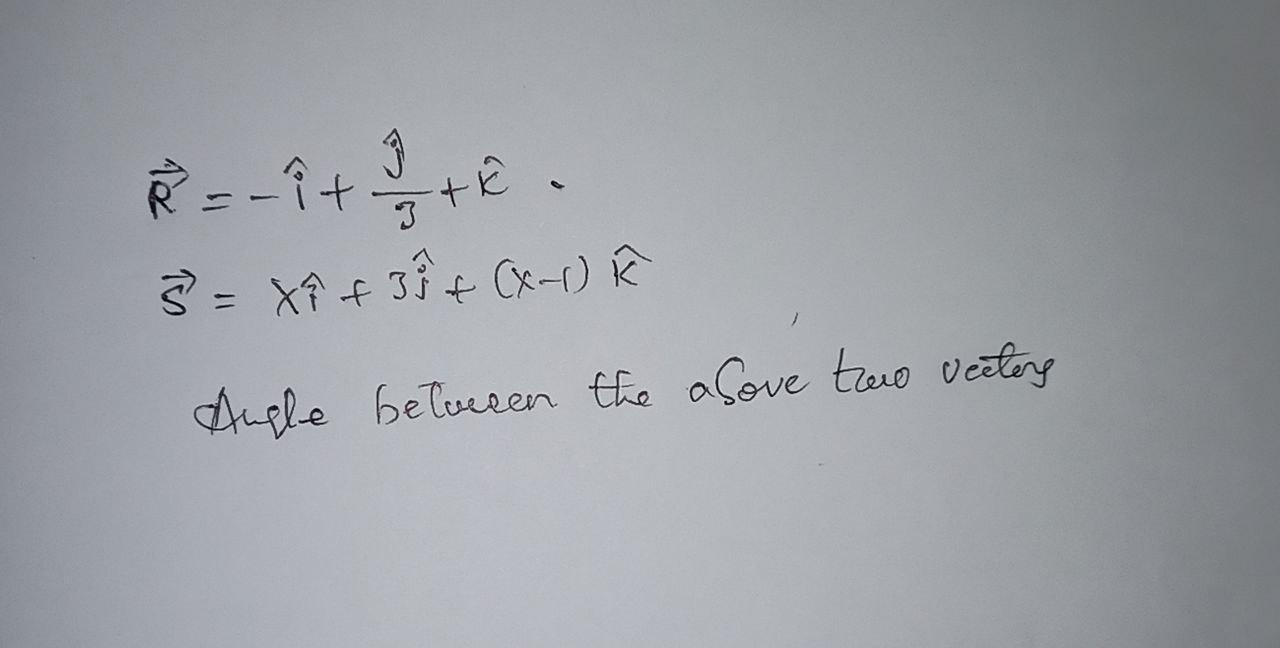 R⃗ = -î + ĵ/3 + k̂ .
S⃗ = xî + 3ĵ + (x-1) k̂
Angle between the above two vectors